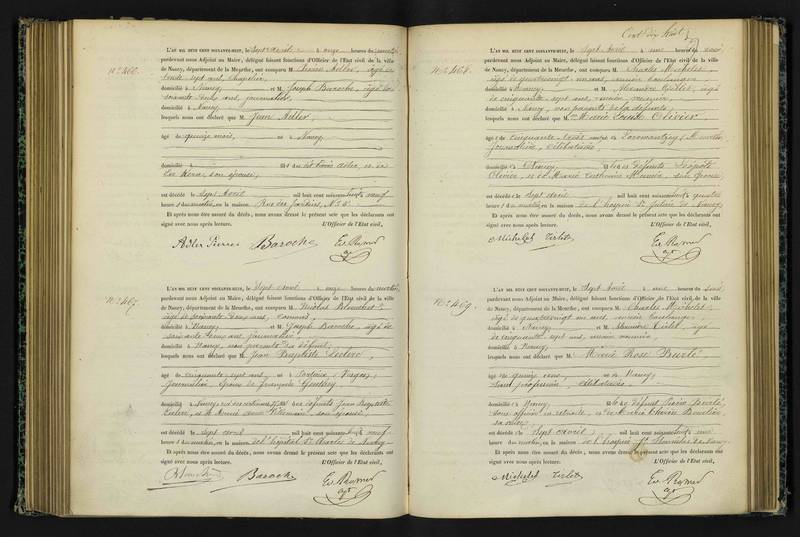 N° 466.
L'AN MIL HUIT CENT SOIXANTE-HUIT, le Sept avril à onze heures du matin
pardevant nous Adjoint au Maire, délégué faisant fonctions d'Officier de l'Etat civil de la ville
de Nancy, département de la Meurthe, ont comparu M. Pierre Adler, âgé de
trente sept ans,
domicilié à Nancy et M. Joseph Baroche, âgé de
soixante deux ans, journalier,
domicilié à Nancy
lesquels nous ont déclaré que M. Jean Adler,
âgé de quinze mois, né à Nancy
domicilié à fils de Pierre Adler, et de
son épouse,
est décédé le Sept Avril mil huit cent soixante-huit, à neuf
heures du matin, en la maison Rue des Jardiniers, N° 5.
Et après nous être assuré du décès, nous avons dressé le présent acte que les déclarants ont
signé avec nous après lecture. L'Officier de l'Etat civil,
Adler Pierre Baroche
N° 467.
L'AN MIL HUIT CENT SOIXANTE-HUIT, le Sept avril à onze heures du matin
pardevant nous Adjoint au Maire, délégué faisant fonctions d'Officier de l'Etat civil de la ville
de Nancy, département de la Meurthe, ont comparu M. Nicolas
âgé de soixante
domicilié à Nancy et M. Joseph Baroche, âgé de
soixante deux ans, journalier,
domicilié à Nancy, non parents du défunt,
lesquels nous ont déclaré que M. Jean Baptiste Leclerc,
âgé de cinquante sept ans, né à Fontaine (Vosges),
journalier, époux de Françoise Gauthey
domicilié à Nancy, fils des défunts Jean Baptiste
Leclerc, et de Marie Anne son épouse,
est décédé le Sept avril mil huit cent soixante-huit, à neuf
heures du matin, en la maison de l'hôpital St Charles de Nancy
Et après nous être assuré du décès, nous avons dressé le présent acte que les déclarants ont
signé avec nous après lecture. L'Officier de l'Etat civil,
Baroche
Cent dix huit
N° 468.
L'AN MIL HUIT CENT SOIXANTE-HUIT, le Sept Avril à une heure du soir
pardevant nous Adjoint au Maire, délégué faisant fonctions d'Officier de l'Etat civil de la ville
de Nancy, département de la Meurthe, ont comparu M. Charles Michelet,
âgé de quatrevingt un ans, ancien boulanger,
domicilié à Nancy et M. Alexandre Tirlet, âgé
de cinquante sept ans, ancien
domicilié à Nancy, non parents de la défunte,
lesquels nous ont déclaré que Marie Louise Olivier
âgée de cinquante trois ans, née à (Meurthe)
journalière, célibataire
domiciliée à Nancy fille des défunts
Olivier, et de Marie Catherine son épouse
est décédée le Sept avril mil huit cent soixante-huit, à quatre
heures du matin, en la maison de l'hospice St Julien de Nancy
Et après nous être assuré du décès, nous avons dressé le présent acte que les déclarants ont
signé avec nous après lecture. L'Officier de l'Etat civil,
Michelet Tirlet
N° 469.
L'AN MIL HUIT CENT SOIXANTE-HUIT, le Sept Avril à une heure du soir
pardevant nous Adjoint au Maire, délégué faisant fonctions d'Officier de l'Etat civil de la ville
de Nancy, département de la Meurthe, ont comparu M. Charles Michelet,
âgé de quatrevingt un ans, ancien boulanger,
domicilié à Nancy et M. Alexandre Tirlet, âgé
de cinquante sept ans, ancien
domicilié à Nancy
lesquels nous ont déclaré que Marie Rose
âgée de quinze ans, née à Nancy,
sans profession, célibataire
domiciliée à Nancy fille de défunt Pierre
sous officier en retraite, et de Marie
sa veuve
est décédée le Sept Avril mil huit cent soixante-huit, à une
heure du matin, en la maison de l'hospice St Stanislas de Nancy
Et après nous être assuré du décès, nous avons dressé le présent acte que les déclarants ont
signé avec nous après lecture. L'Officier de l'Etat civil,
Michelet Tirlet